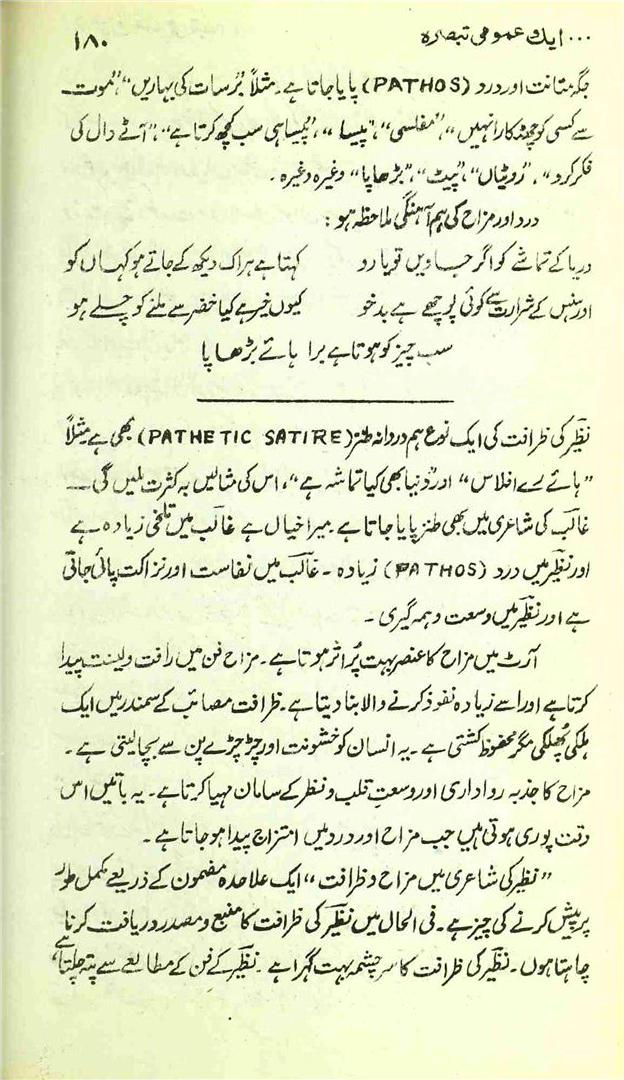 ... ایک عمومی تبصرہ ۱۸۰
جگہ متانت اور درد (PATHOS) پایا جاتا ہے۔ مثلاً "برسات کی بہاریں"، "موت
سے کسی کو چھٹکارا نہیں"، "مفلسی"، "پیسا"، "پیسا ہی سب کچھ کرتا ہے"، "آٹے دال کی
فکر کرو"، "روٹیاں"، "پیٹ"، "بڑھاپا" وغیرہ وغیرہ۔
درد اور مزاح کی ہم آہنگی ملاحظہ ہو:
دریا کے تماشے کو اگر جاویں تو یارو کہتا ہے ہراک دیکھ کے جاتے ہو کہاں کو
اور ہنس کے شرارت سے کوئی پوچھے ہے بدخو کیوں خیر ہے کیا خضر سے ملنے کو چلے ہو
سب چیز کو ہوتا ہے برا ہائے بڑھاپا
نظیر کی ظرافت کی ایک نوع ہم دردانہ طنز (PATHETIC SATIRE) بھی ہے مثلاً
"ہائے رے افلاس" اور "دنیا بھی کیا تماشہ ہے"، اس کی مثالیں بہ کثرت ملیں گی۔
غالب کی شاعری میں بھی طنز پایا جاتا ہے۔ میرا خیال ہے غالب میں تلخی زیادہ ہے
اور نظیر میں درد (PATHOS) زیادہ۔ غالب میں نفاست اور نزاکت پائی جاتی
ہے اور نظیر میں وسعت و ہمہ گیری۔
آرٹ میں مزاح کا عنصر بہت پُر اثر ہوتا ہے۔ مزاح فن میں رافت و لینت پیدا
کرتا ہے اور اسے زیادہ نفوذ کرنے والا بنا دیتا ہے۔ ظرافت مصائب کے سمندر میں ایک
ہلکی پُھلکی مگر محفوظ کشتی ہے۔ یہ انسان کو خشونت اور چڑچڑے پن سے بچا لیتی ہے۔
مزاح کا جذبہ رواداری اور وسعتِ قلب و نظر کے سامان مہیا کرتا ہے۔ یہ باتیں اس
وقت پوری ہوتی ہیں جب مزاح اور درد میں امتزاج پیدا ہو جاتا ہے۔
"نظیر کی شاعری میں مزاح و ظرافت" ایک علاحدہ مضمون کے ذریعے مکمل طور
پر پیش کرنے کی چیز ہے۔ فی الحال میں نظیر کی ظرافت کا منبع و مصدر دریافت کرنا
چاہتا ہوں۔ نظیر کی ظرافت کا سرچشمہ بہت گہرا ہے۔ نظیر کے فن کے مطالعے سے پتہ چلتا ہے